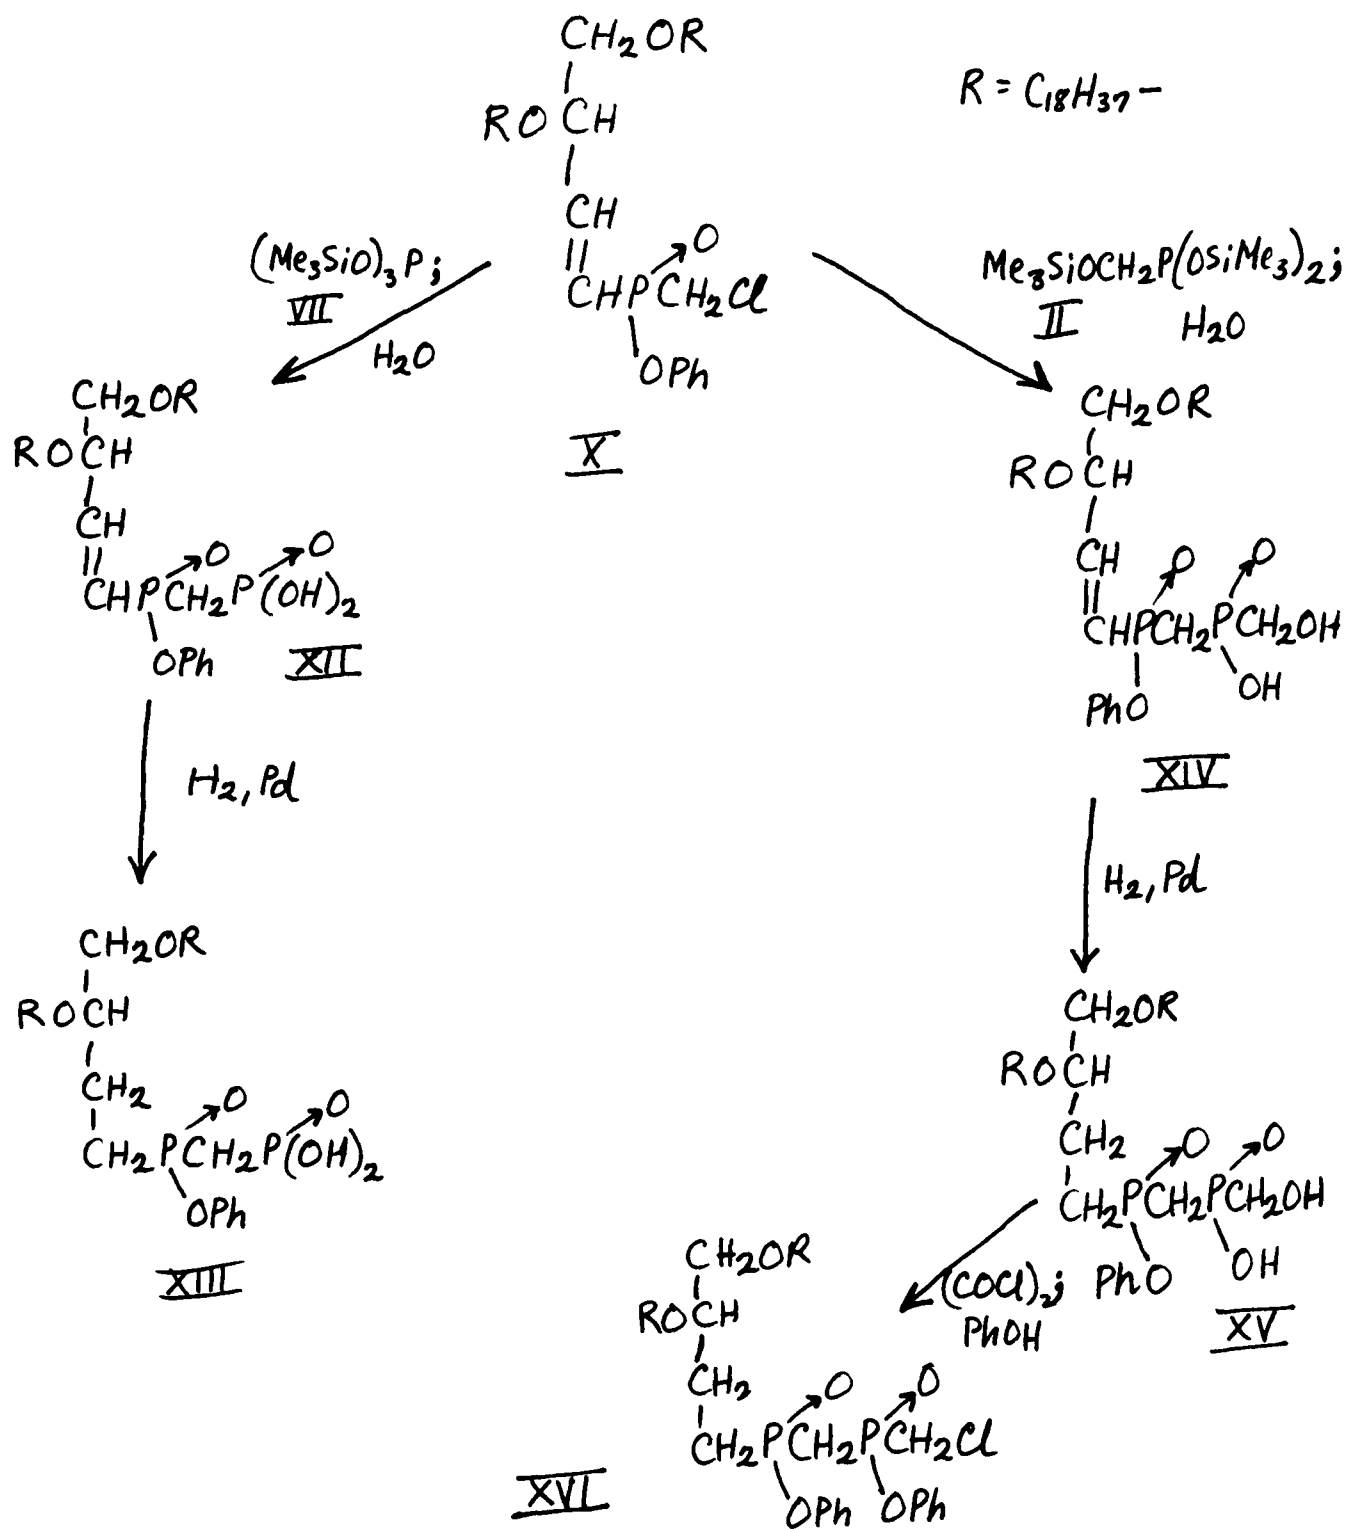 CH₂OR
R = C₁₈H₃₇ –
RO CH
CH
CHPCH₂Cl
O
OPh
X
(Me₃SiO)₃P;
VII
H₂O
Me₃SiOCH₂P(OSiMe₃)₂;
II H₂O
CH₂OR
ROCH
CH
O O
CHPCH₂P(OH)₂
OPh XII
H₂, Pd
CH₂OR
ROCH
CH₂
O O
CH₂PCH₂P(OH)₂
OPh
XIII
CH₂OR
ROCH
CH
O O
CHPCH₂PCH₂OH
OH
PhO
XIV
H₂, Pd
CH₂OR
ROCH
CH₂
O O
CH₂PCH₂PCH₂OH
PhO OH
XV
(COCl)₂;
PhOH
CH₂OR
ROCH
CH₂
O O
CH₂PCH₂PCH₂Cl
OPh OPh
XVI